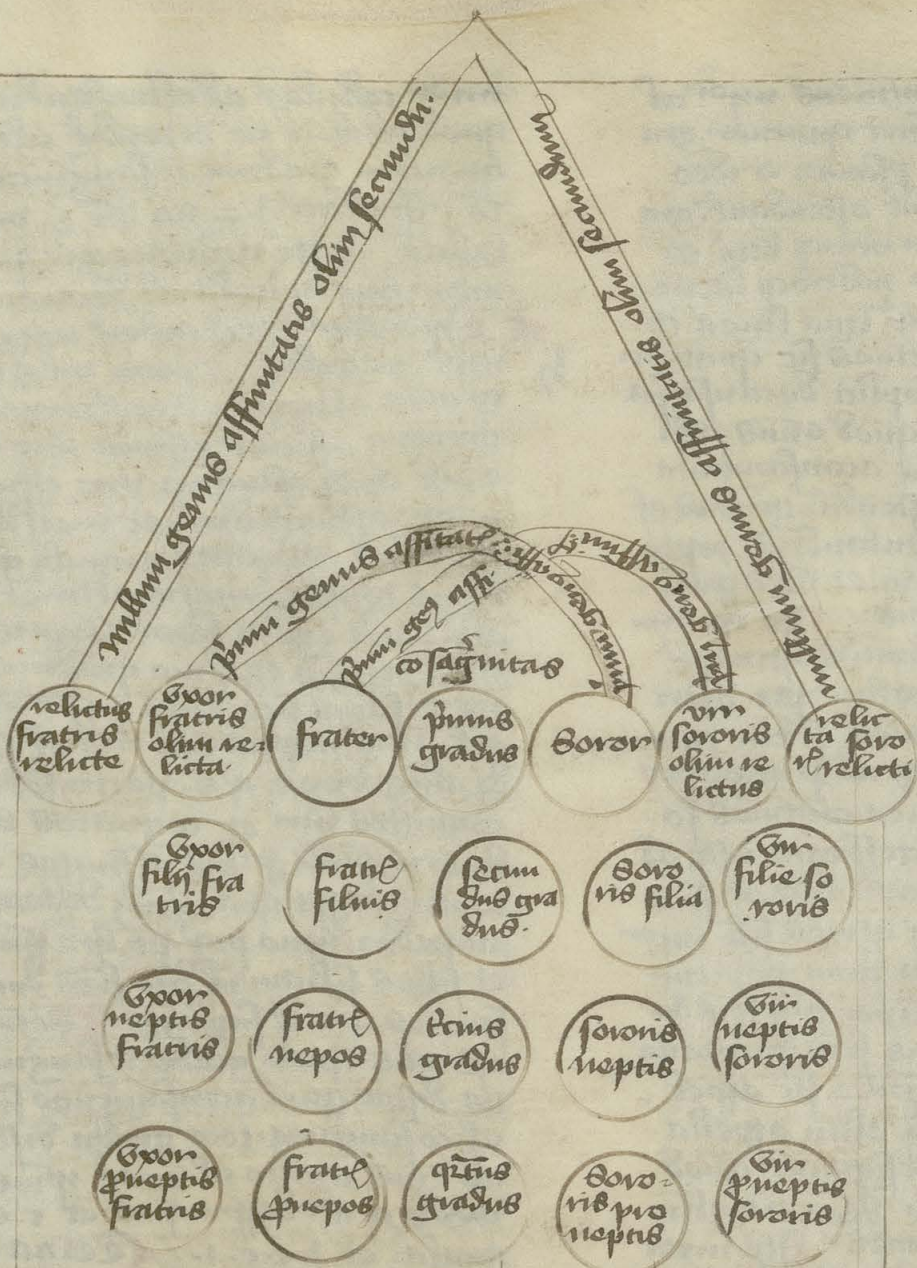 nullum genus affinitatis olim secundum.
nullum genus affinitatis olim secundum
p̄mum genus affi͞tat͡ꝭ
p̄mum geꝰ affi
p̄mū genꝰ affi
cōsāgͥnitas
relictus
fratris
relicte
Vxor
fratris
olim re-
licta.
frater
pͥmus
gradus
Soror
vir
sororis
olim re
lictus
relic
ta soro
rꝭ relicti
Vxor
filij fra
tris
fratrꝭ
filius
secun
dus gra
dus.
Soro
ris filia
Vir
filie so
roris
Vxor
neptis
fratris
fratrꝭ
nepos
t͛cius
gradus
sororis
neptis
Vir
neptis
sororis
Vxor
ꝓneptis
fratris
fratrꝭ
ꝓnepos
qͣrtus
gradus
Soro-
ris pro
neptis
Vir
ꝓneptis
sororis